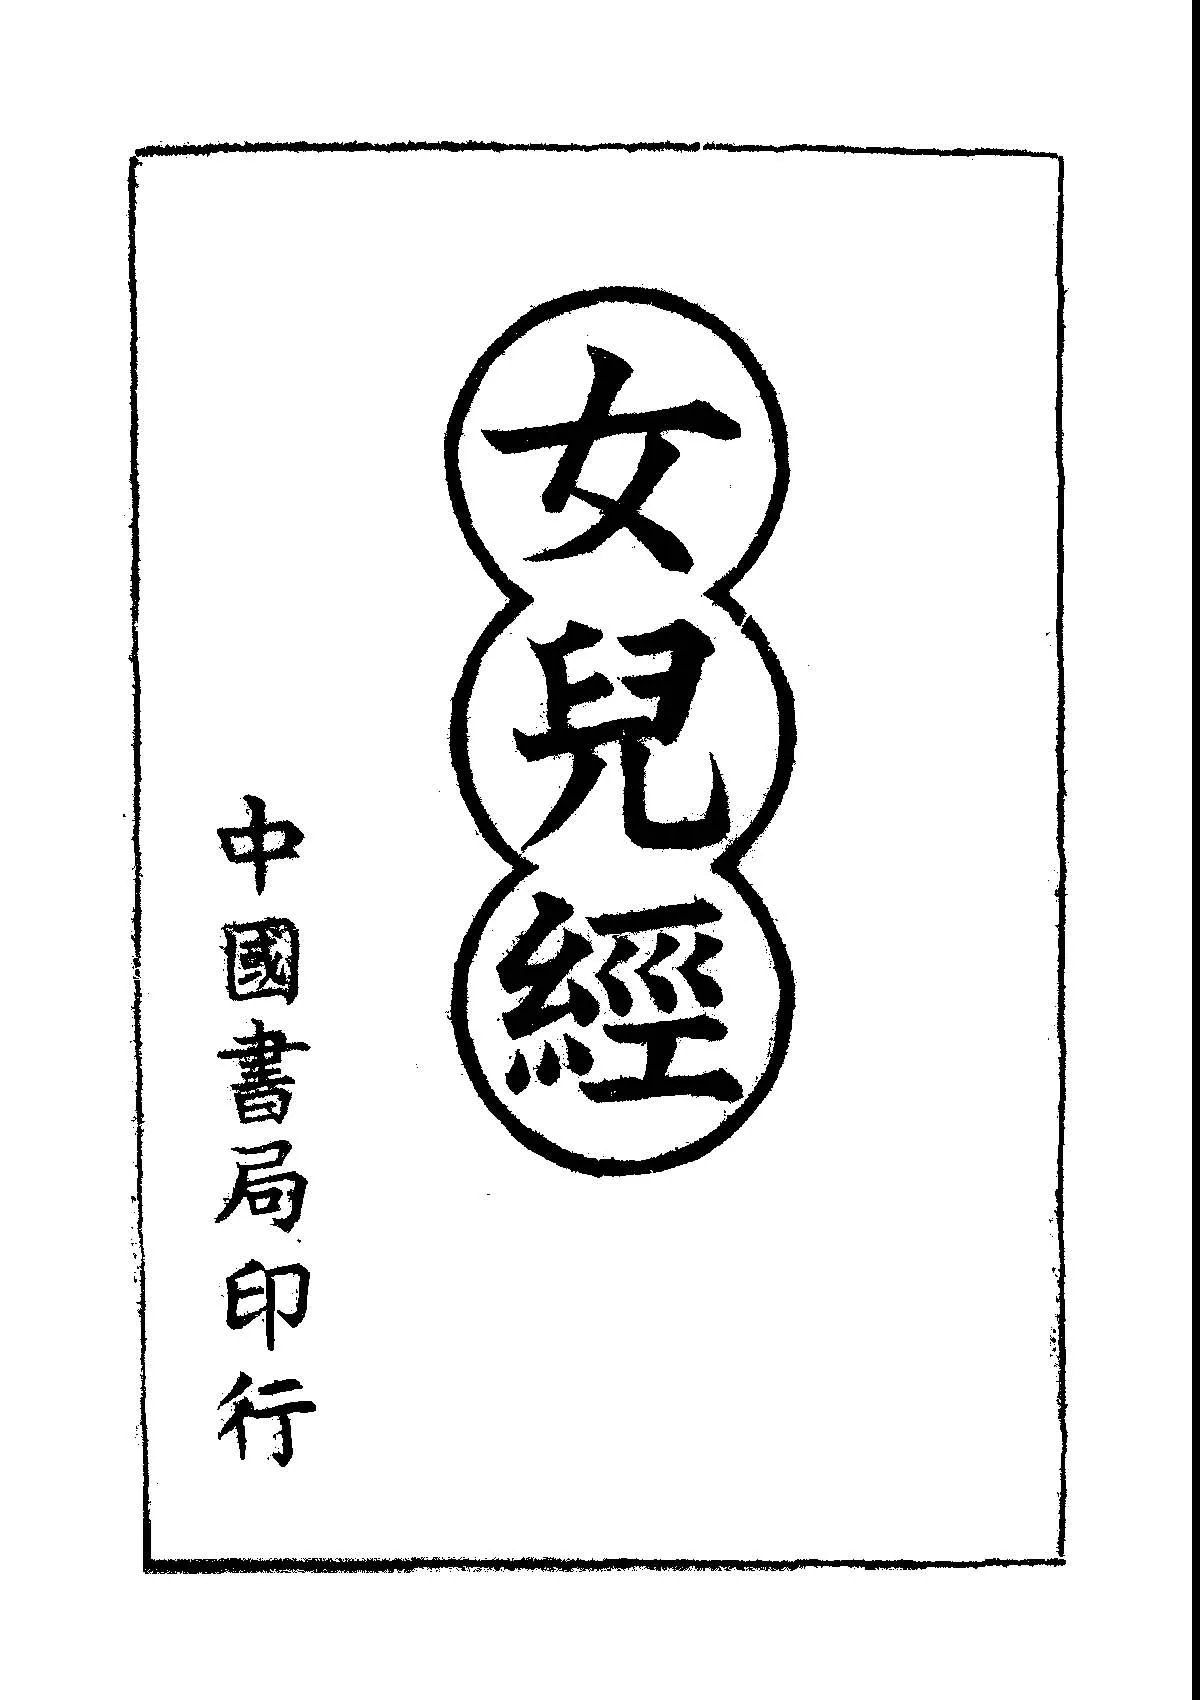 女兒經
中國書局印行